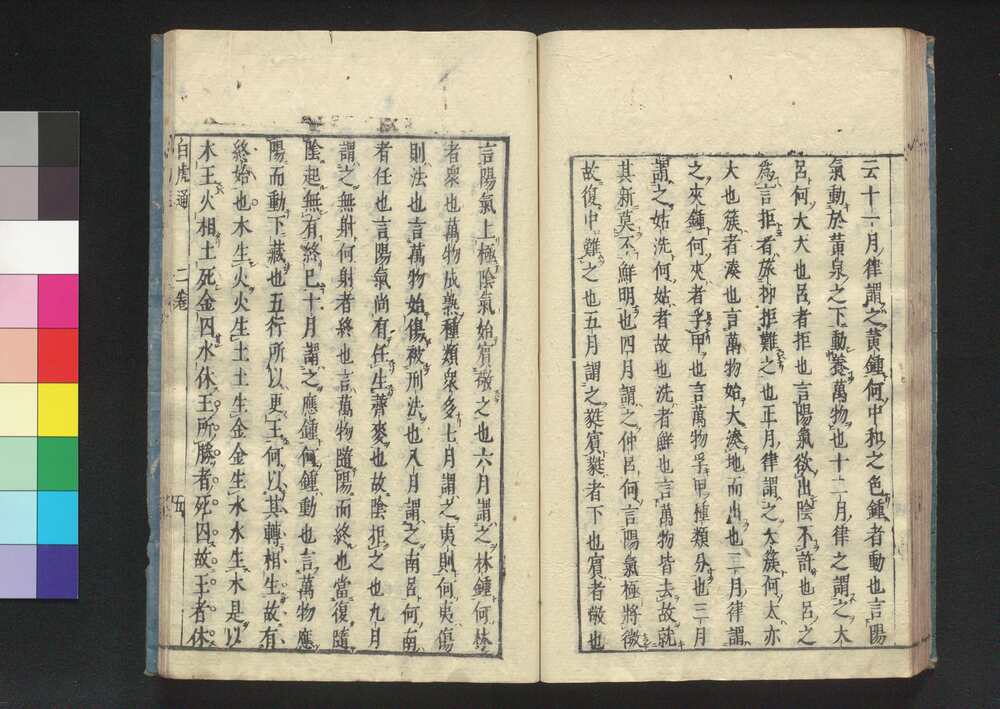 云十一月律謂之黄鍾何中和之色鍾者動也言陽
氣動於黄泉之下動養萬物也十二月律之謂之大
呂何大大也呂者拒也言陽氣欲出陰不許也呂之
爲言拒者旅抑拒難之也正月律謂之大簇何太亦
大也簇者湊也言萬物始大湊地而出也二月律謂
之夾鍾何夾者孚甲也言萬物孚甲種類分也三月
謂之姑洗何姑者故也洗者鮮也言萬物皆去故就
其新莫不鮮明也四月謂之仲呂何言陽氣極將微
故復中難之也五月謂之蕤賓蕤者下也賓者敬也
言陽氣上極陰氣始賓敬之也六月謂之林鍾何林
者衆也萬物成熟種類衆多七月謂之夷則何夷傷
則法也言萬物始傷被刑法也八月謂之南呂何南
者任也言陽氣尚有任生薺麥也故陰拒之也九月
謂之無射何射者終也言萬物隨陽而終也當復隨
陰起無有終已十月謂之應鍾何鍾動也言萬物應
陽而動下藏也五行所以更王何以其轉相生故有
終始也木生火火生土土生金金生水水生木是以
木王火相土死金囚水休王所勝者死囚故王者休
白虎通 二卷 五